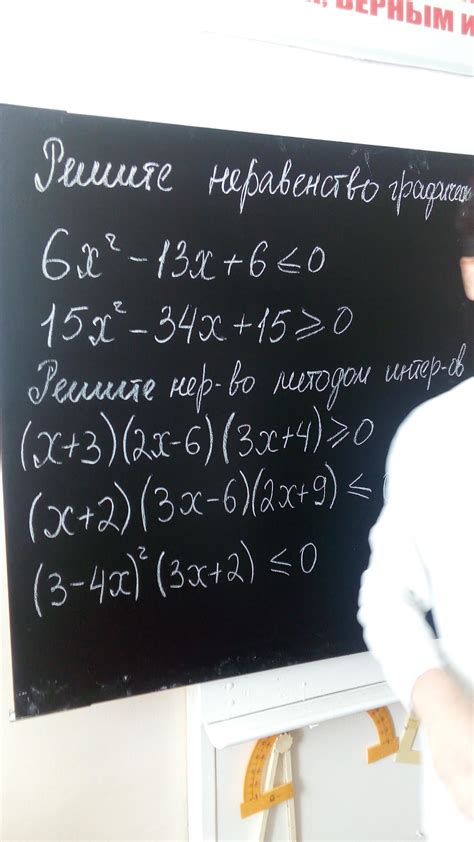 ВЕРНЫМ И
Решите неравенство графическ
6x² - 13x + 6 ≤ 0
15x² - 34x + 15 ≥ 0
Решите нер-во методом интер-ов
(x+3)(2x-6)(3x+4) ≥ 0
(x+2)(3x-6)(2x+9) ≤
(3-4x)²(3x+2) ≤ 0